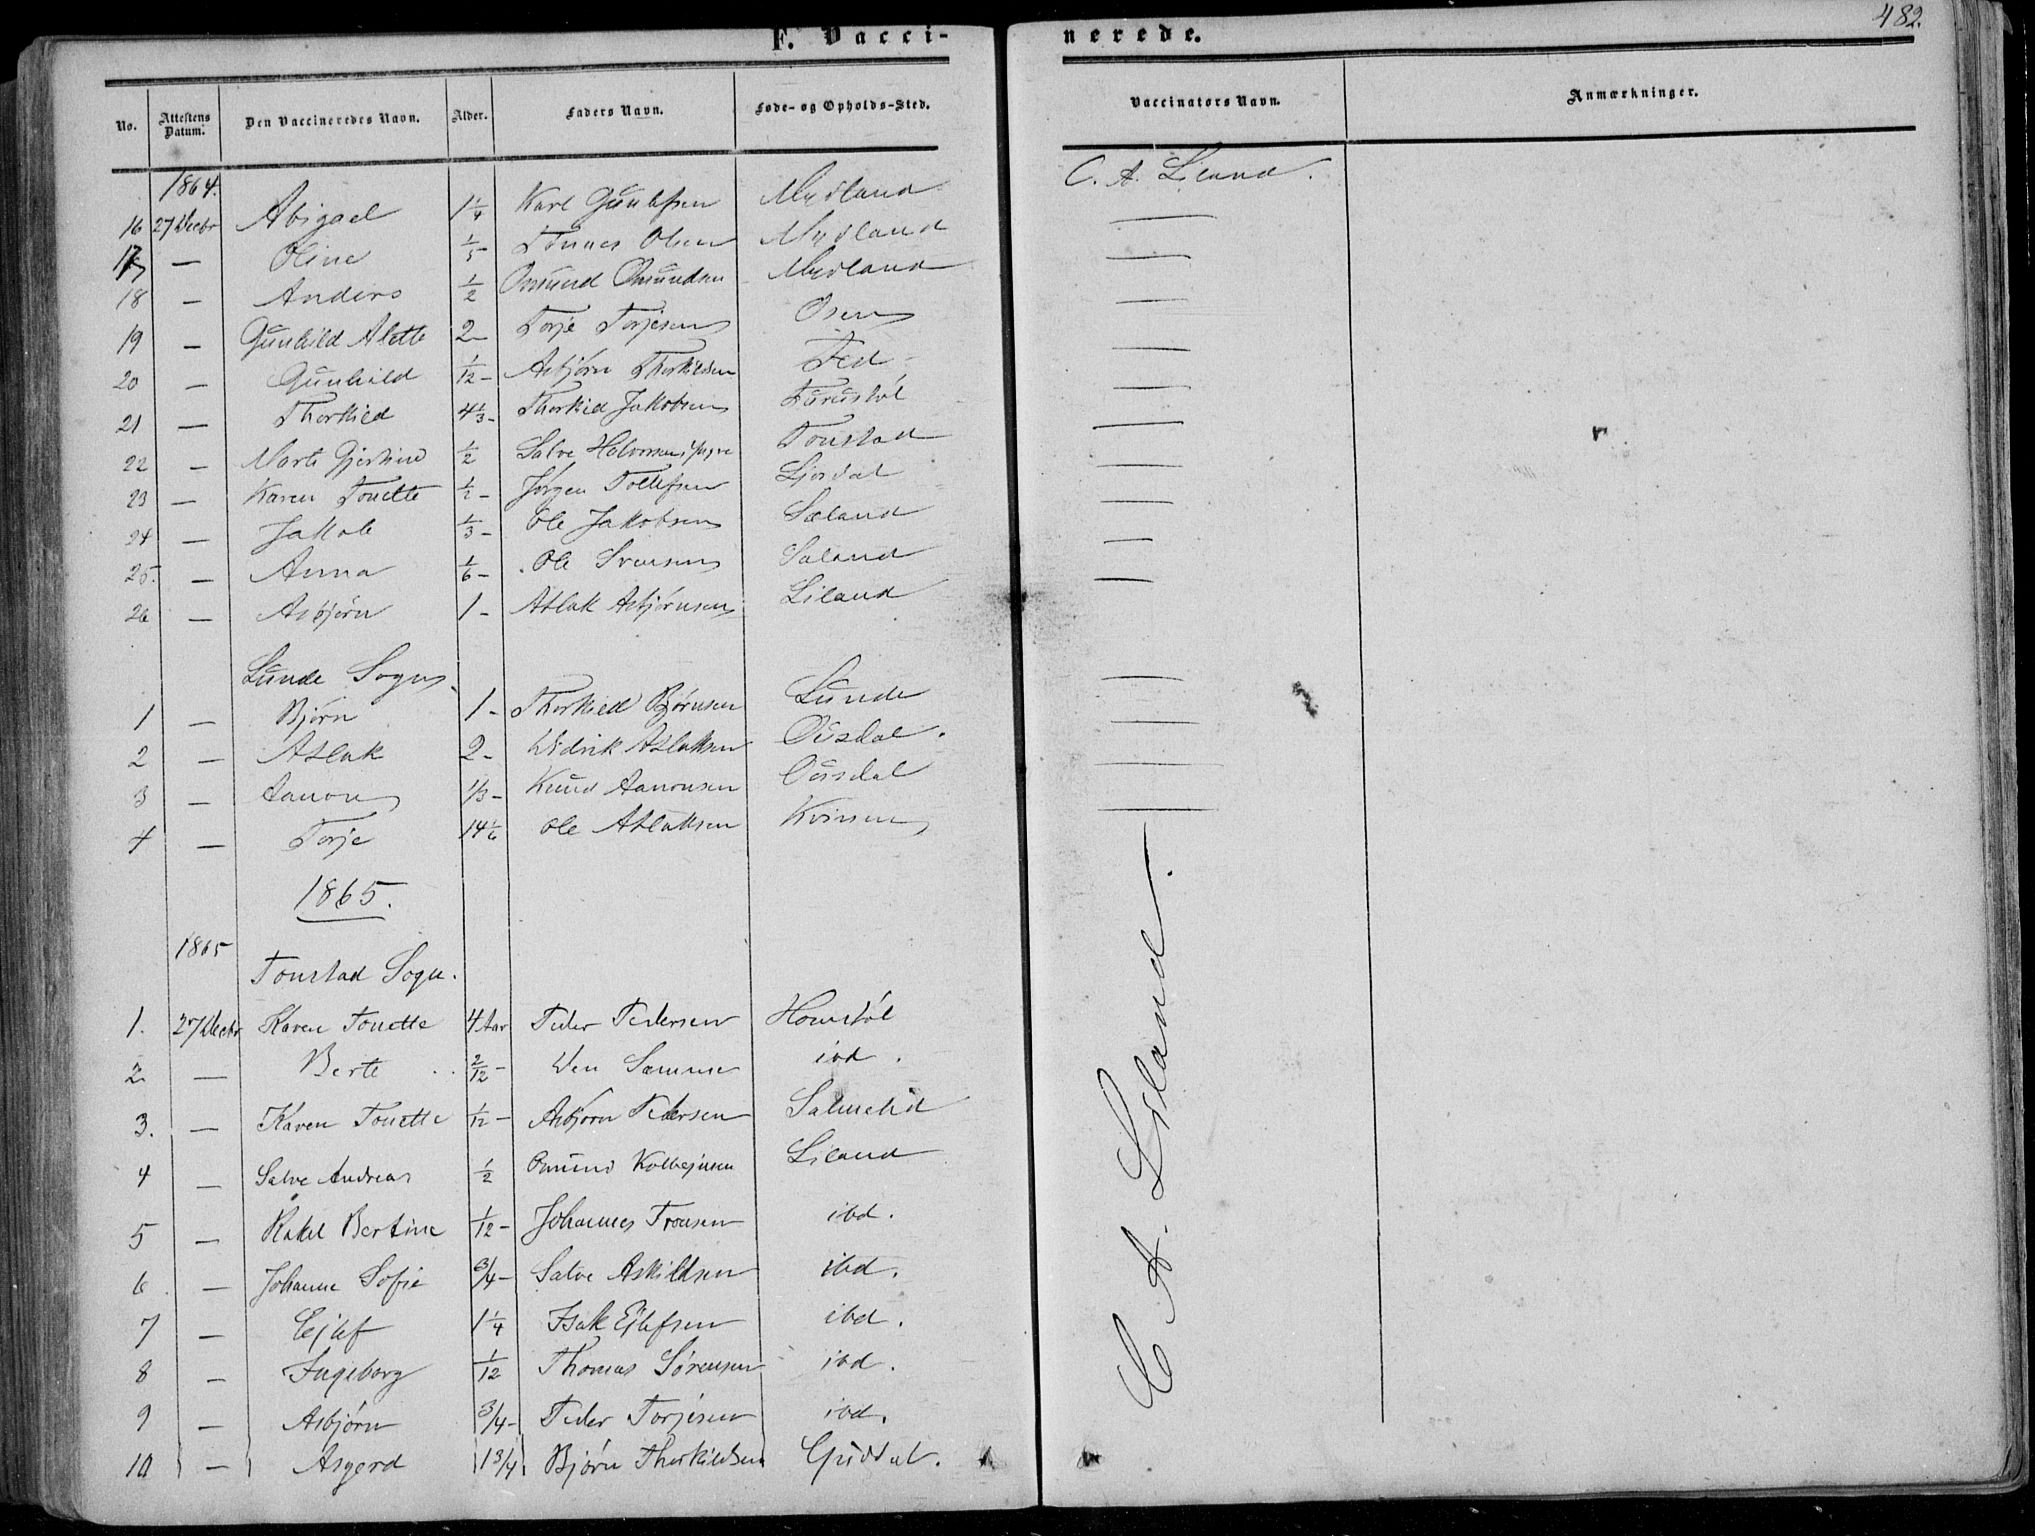 482.
F. Vaccinerede.
No. Attestens Datum. Den Vaccineredes Navn. Alder. Faders Navn. Føde- og Opholds-Sted. Vaccinators Navn. Anmærkninger.
1864.
16 27 Decbr Abigael 1 1/4 Karl Gunlefsen Mydland C. A. Liland.
17 — Oline 1/5 Tønnes Olsen Mydland —
18 — Anders 1/2 Osmund Osmundsen Mydland —
19 — Gunhild Alette 2 - Torje Torjesen Osen —
20 — Gunhild 1/12 - Asbjørn Thorkildsen Fed —
21 — Thorkild 4 1/3 - Thorkild Jakobsen Furustøl —
22 — Marte Gjertine 1/2 Salve Halvorsen Tonstad —
23 — Karen Tonette 1/2 - Jørgen Tollefsen Ljosdal —
24 — Jakob 1/3 - Ole Jakobsen Sæland —
25. — Anna 1/6 - Ole Svensen Sæland —
26 — Asbjørn 1 - Atlak Asbjørnsen Liland —
Lunde Sogn.
1 — Bjørn 1 - Thorkild Bjørnsen Lunde —
2 — Atlak 2 - Didrik Atlaksen Ousdal. —
3 — Aanon 1/3 - Knud Aanonsen Ousdal —
4 — Torje 14 1/6 Ole Atlaksen Kvinen —
1865.
1865
Tonstad Sogn.
1. 27 Decbr Karen Tonette 4 Aar Peder Pedersen Homstøl C. A. Liland.
2 — Berte 2/12 - Den Samme ibd.
3. — Karen Tonette 1/12 - Asbjørn Pedersen Salmelid
4 — Salve Andreas 1/2 Osmund Kolbejnsen Liland
5 — Rakel Bertine 1/12 - Johannes Tronsen ibd.
6 — Johanne Sofie 3/4 - Salve Askildsen ibd.
7 — Ejlef 1 1/4 Isak Ejlefsen ibd.
8 — Ingeborg 1/12 Thomas Sørensen ibd.
9 — Asbjørn 3/4 - Peder Torjesen ibd.
10 — Asgerd 1 3/4 Bjørn Thorkildsen Guddal.